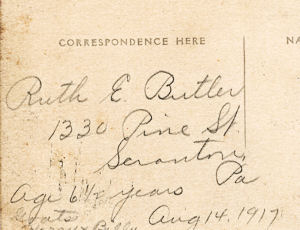 CORRESPONDENCE HERE
NA
Ruth E. Butler
1330 Pine St
Scranton,
Pa
Age 6½ years
Goats
Billy
Aug 14, 1917